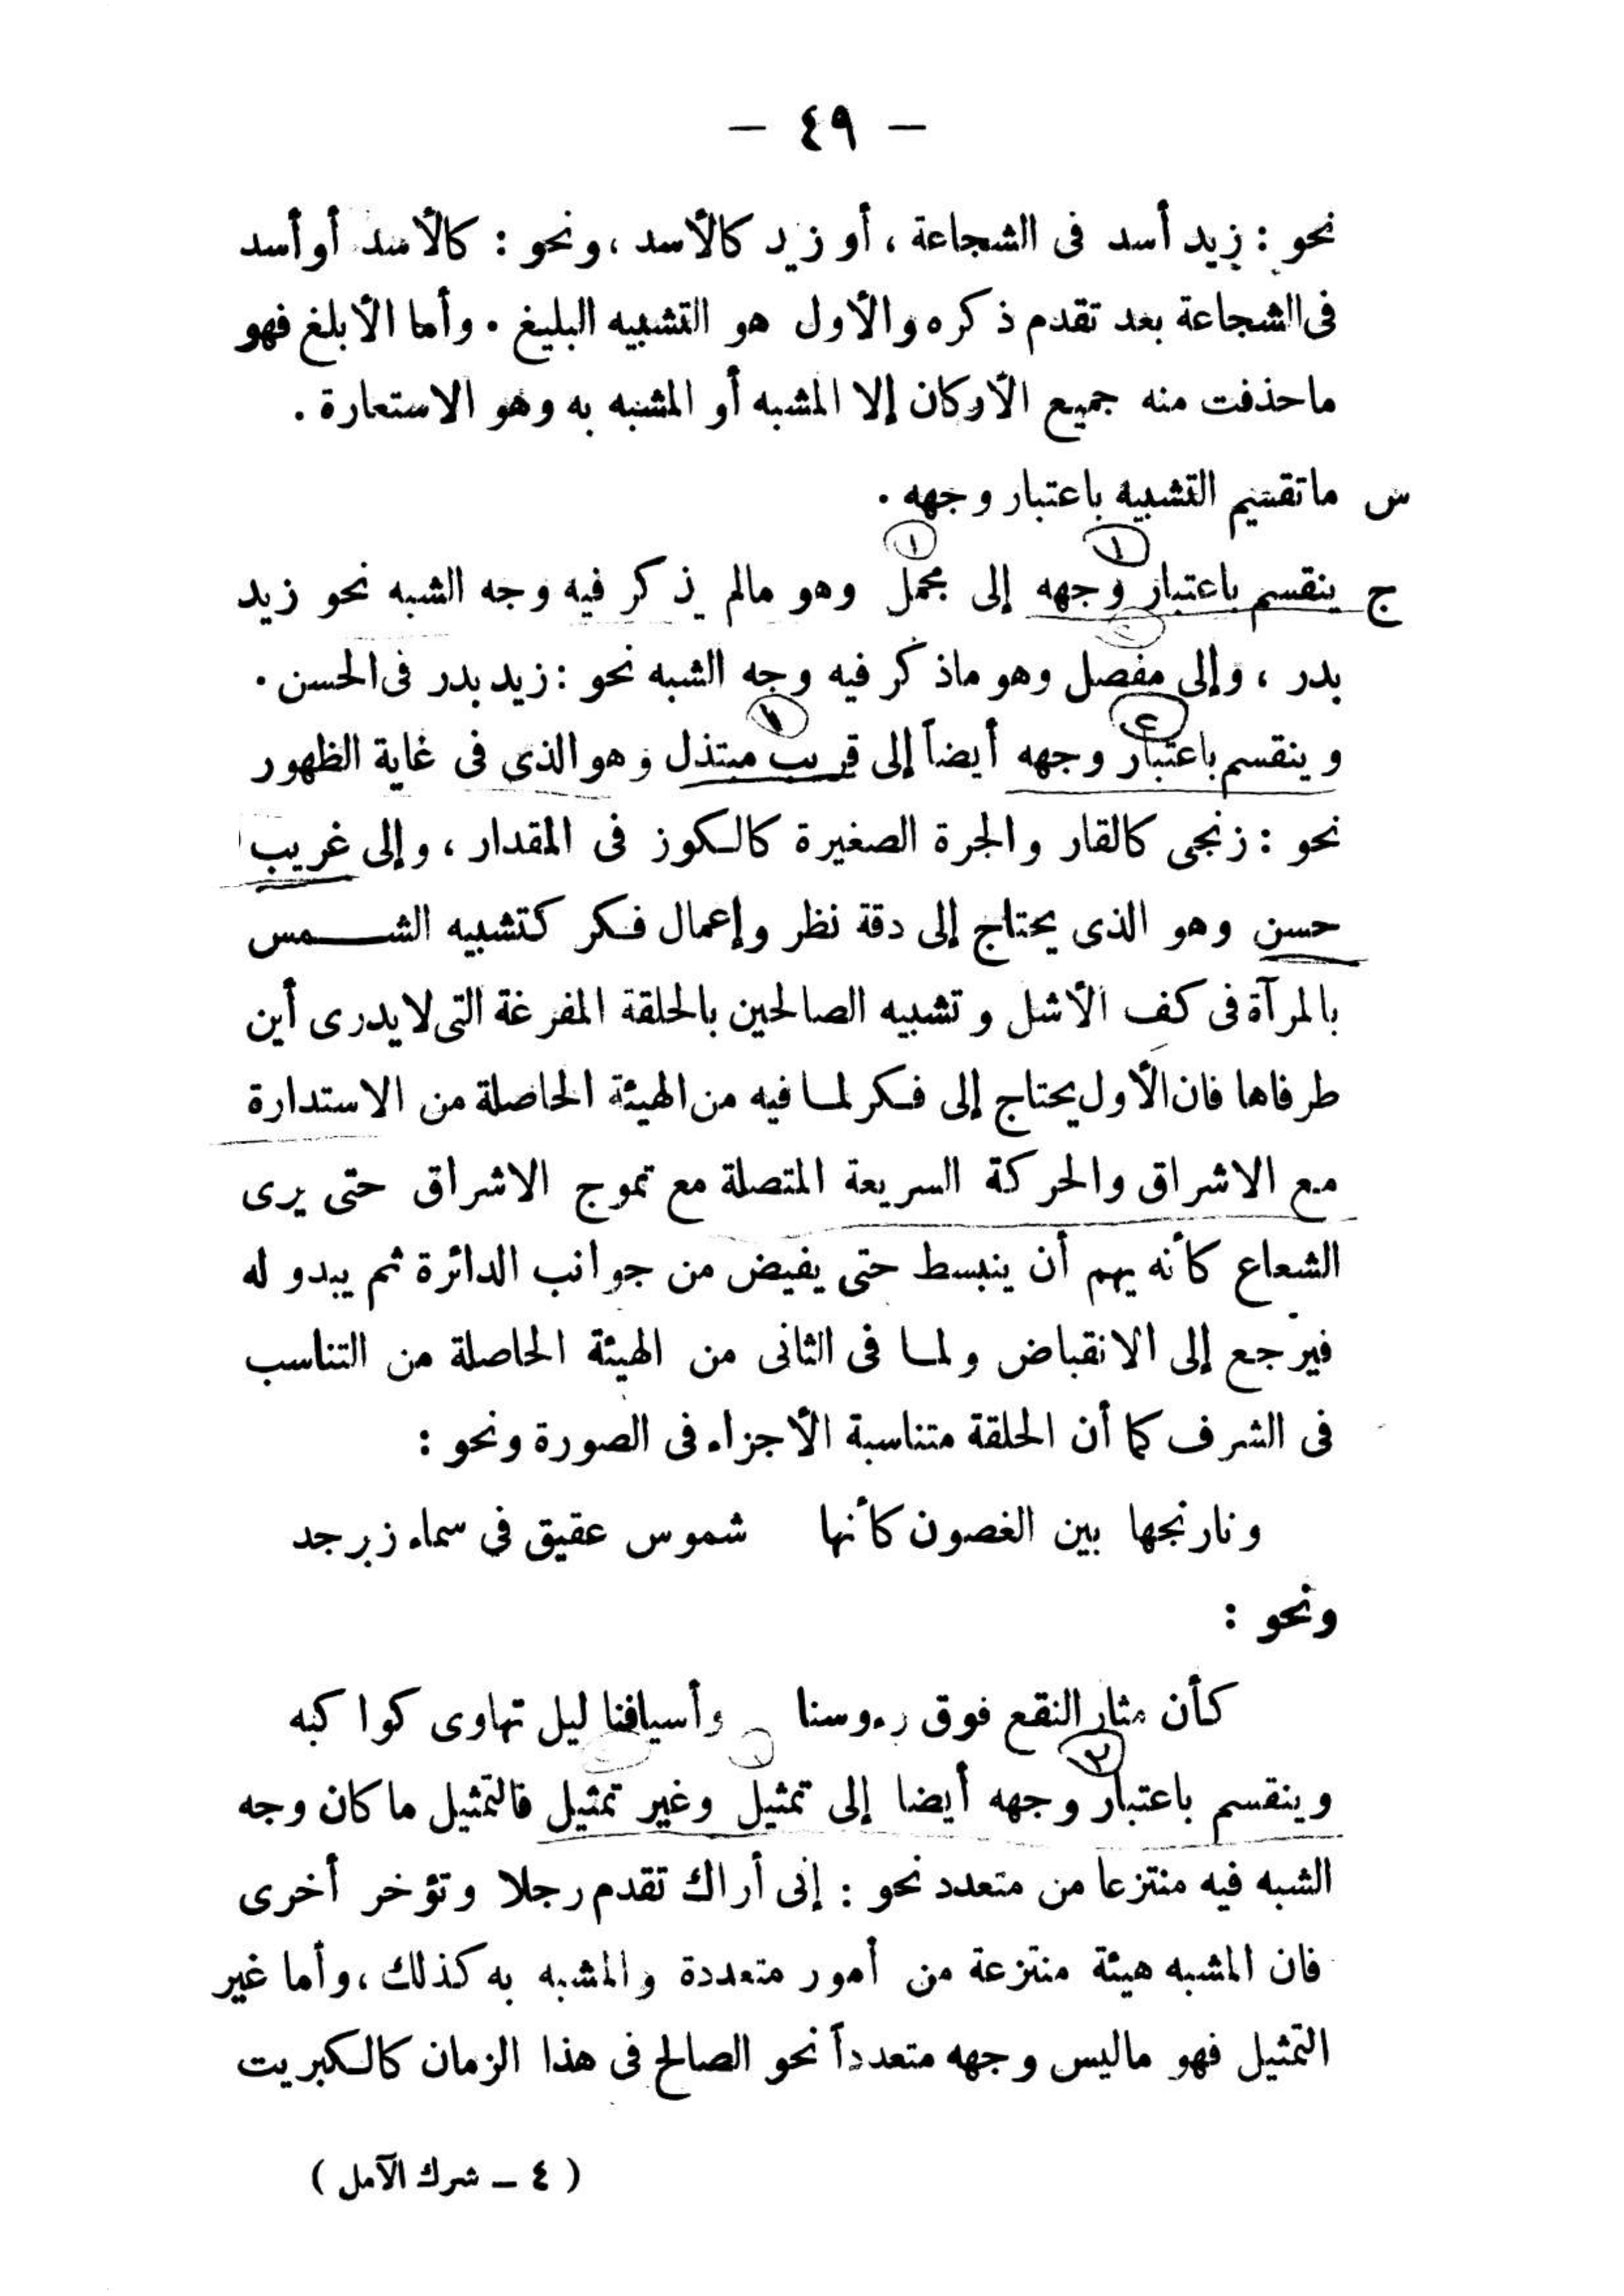 — ٤٩ —
نحو : زيد أسد فى الشجاعة ، أو زيد كالأسد ، ونحو : كالأسد أو أسد
فى الشجاعة بعد تقدم ذكره والأول هو التشبيه البليغ . وأما الأبلغ فهو
ماحذفت منه جميع الأركان إلا المشبه أو المشبه به وهو الاستعارة .
س ماتقسيم التشبيه باعتبار وجهه .
ج ينقسم باعتبار وجهه إلى مجمل وهو مالم يذكر فيه وجه الشبه نحو زيد
بدر ، وإلى مفصل وهو ماذكر فيه وجه الشبه نحو : زيد بدر فى الحسن .
وينقسم باعتبار وجهه أيضاً إلى قريب مبتذل وهو الذى فى غاية الظهور
نحو : زنجى كالقار والجرة الصغيرة كالكوز فى المقدار ، وإلى غريب
حسن وهو الذى يحتاج إلى دقة نظر وإعمال فكر كتشبيه الشمس
بالمرآة فى كف الأشل وتشبيه الصالحين بالحلقة المفرغة التى لايدرى أين
طرفاها فان الأول يحتاج إلى فكر لما فيه من الهيئة الحاصلة من الاستدارة
مع الاشراق والحركة السريعة المتصلة مع تموج الاشراق حتى يرى
الشعاع كأنه يهم أن ينبسط حتى يفيض من جوانب الدائرة ثم يبدو له
فيرجع إلى الانقباض ولما فى الثانى من الهيئة الحاصلة من التناسب
فى الشرف كما أن الحلقة متناسبة الأجزاء فى الصورة ونحو :
ونارنجها بين الغصون كأنها شموس عقيق فى سماء زبرجد
ونحو :
كأن مثار النقع فوق رءوسنا وأسيافنا ليل تهاوى كواكبه
وينقسم باعتبار وجهه أيضا إلى تمثيل وغير تمثيل فالتمثيل ما كان وجه
الشبه فيه منتزعا من متعدد نحو : إنى أراك تقدم رجلا وتؤخر أخرى
فان المشبه هيئة منتزعة من أمور متعددة والمشبه به كذلك ، وأما غير
التمثيل فهو ماليس وجهه متعدداً نحو الصالح فى هذا الزمان كالكبريت
( ٤ – شرك الآمل )